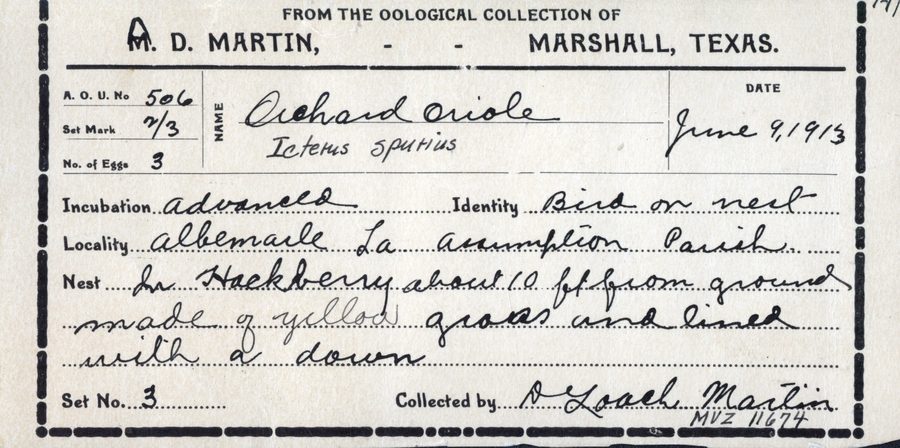 FROM THE OOLOGICAL COLLECTION OF
M. D. MARTIN, - - MARSHALL, TEXAS.
A. O. U. No 506
Set Mark 2/3
No. of Eggs 3
NAME
Orchard Oriole
Icterus spurius
DATE
June 9, 1913
Incubation advanced Identity Bird on nest
Locality Albemarle La Assumption Parish.
Nest In Hackberry about 10 ft from ground
made of yellow grass and lined
with a down
Set No. 3 Collected by D Loach Martin
MVZ 11674